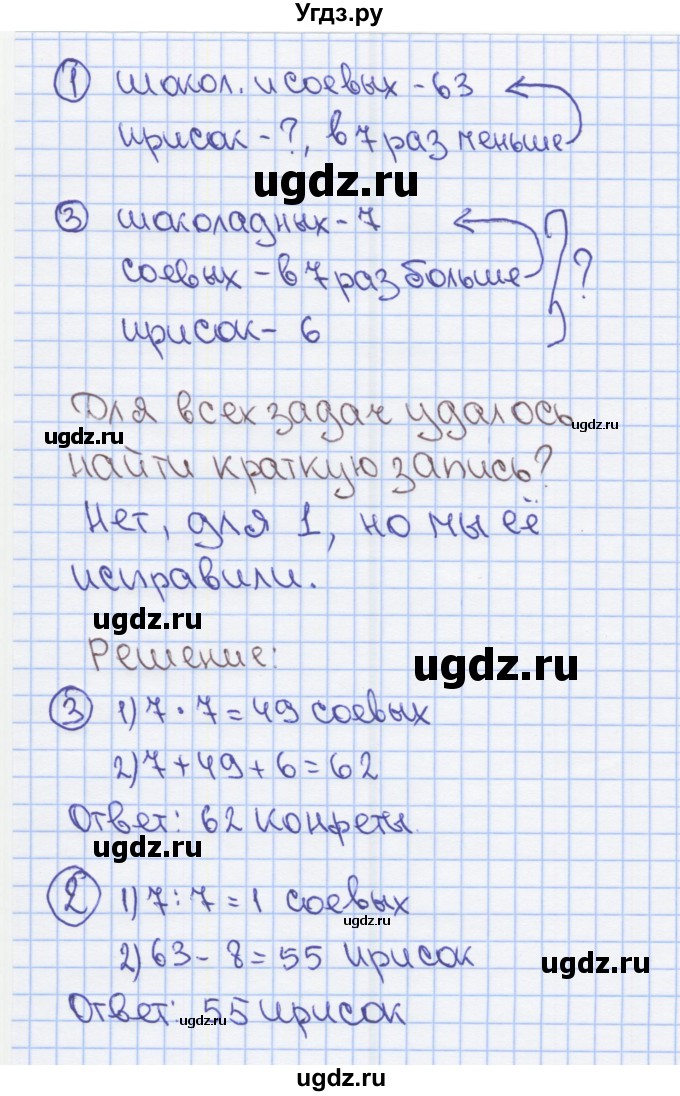 Угдз.ру
1 шокол. и соевых - 63
ирисок - ?, в 7 раз меньше
ugdz.ru
3 шоколадных - 7
соевых - в 7 раз больше ?
ирисок - 6
Для всех задач удалось
ugdz.ru ugdz.ru
найти краткую запись?
Нет, для 1, но мы её
исправили.
ugdz.ru
Решение:
ugdz.ru
3 1) 7 · 7 = 49 соевых
2) 7 + 49 + 6 = 62
Ответ: 62 конфеты.
ugdz.ru
2 1) 7 : 7 = 1 соевых
ugdz.ru
2) 63 - 8 = 55 ирисок
ugdz.ru
Ответ: 55 ирисок
ugdz.ru
ugdz.ru